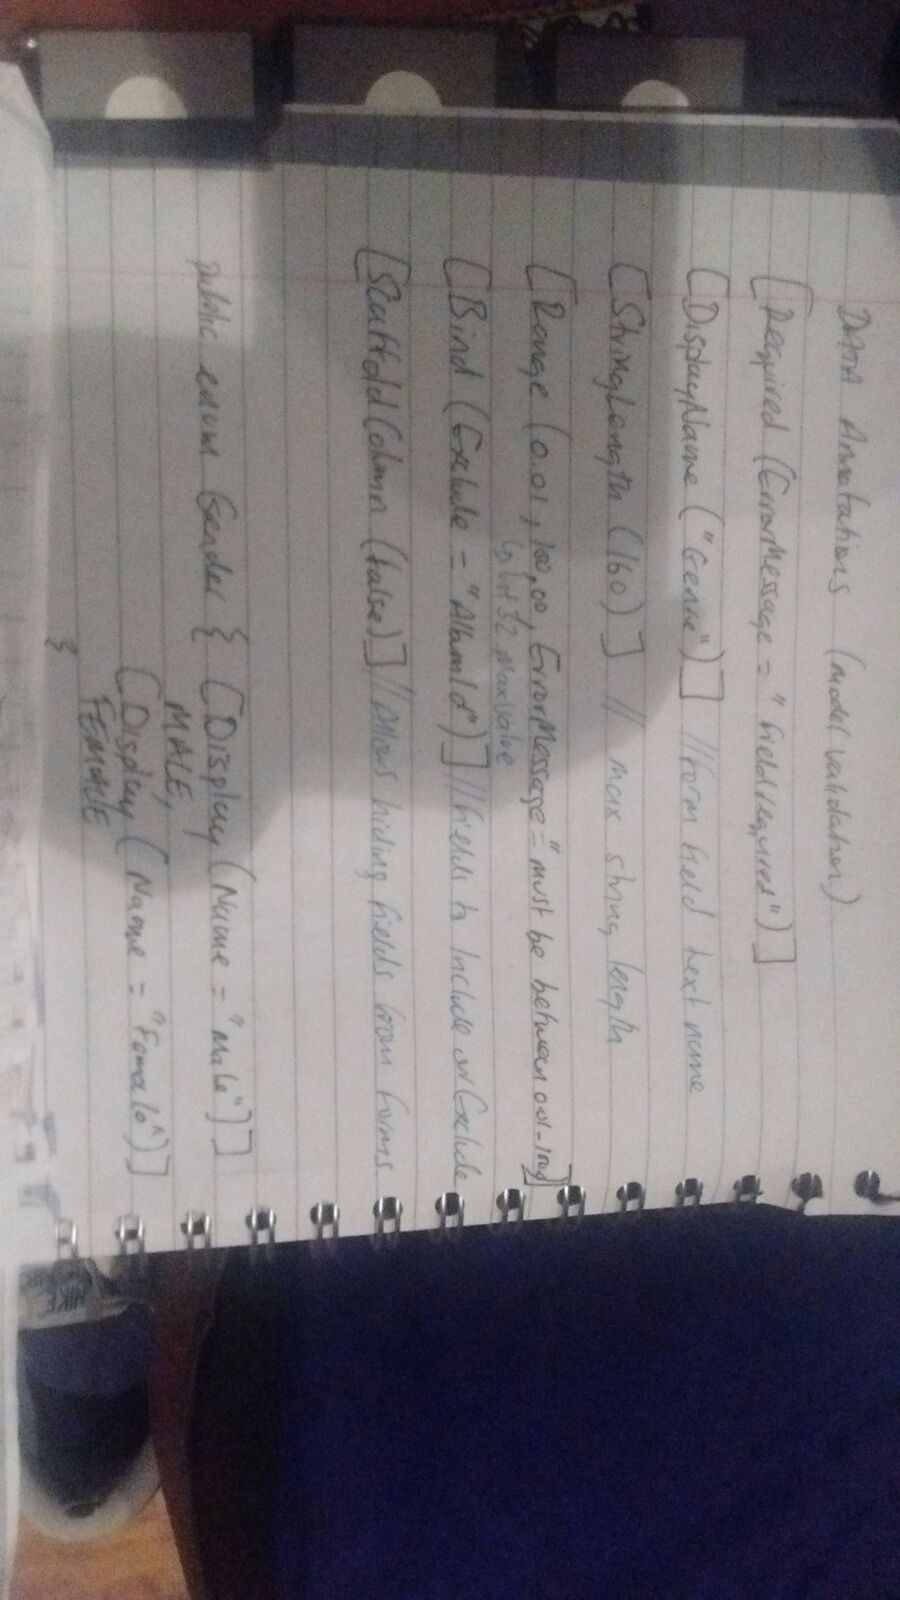 DATA Annotations (model validation)
[Required (ErrorMessage = "field required")]
[DisplayName ("Genre")] //form field text name
[StringLength (160)] // max string length
[Range (0.01, 100,00, ErrorMessage = "must be between 0.01-100
↳ Int32.MaxValue
[Bind (Exclude = "AlbumId")] //fields to Include or Exclude
[ScaffoldColumn (false)] //Allows hiding fields from forms
public enum Gender { [Display (Name = "Male"]]
MALE,
[Display (Name = "Female")]
FEMALE
}